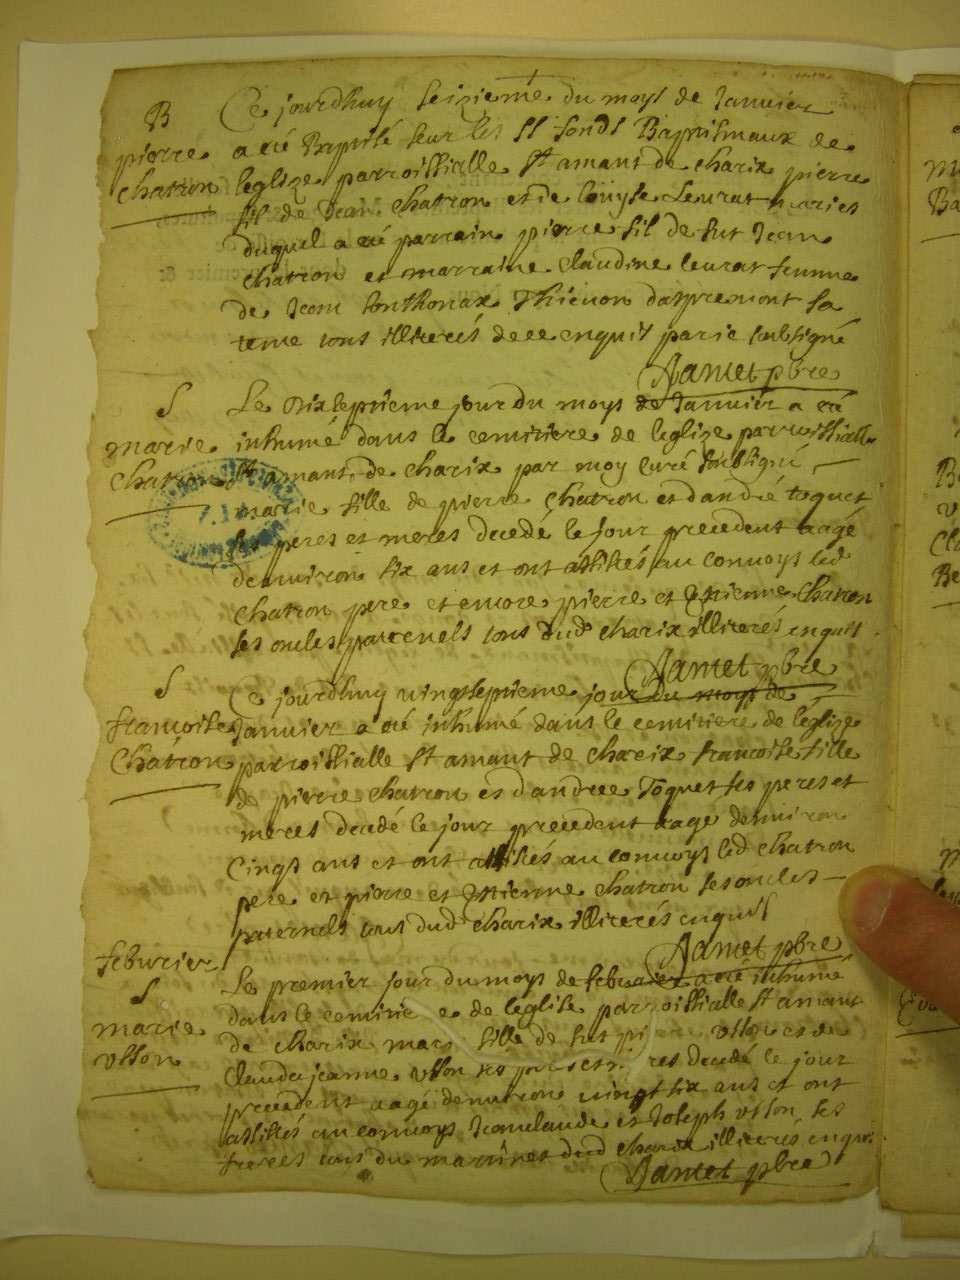 B
pierre
chatron
Ce jourdhuy seizieme du moys de Janvier
a eté Baptisé sur les SS fonds Baptismaux de
leglize parroissialle St amant de charix pierre
fil de Jean chatron et de louyse Leurat maries
duquel a eté parrain pierre fil de fut Jean
chatron et marraine claudine leurat femme
de Jean tonthonax Thienon daspremont sa
tous illiterés de ce enquit par ie soubsigné
Jantet pbre
S
marie
chatron
Le dixseptieme jour du moys de Janvier a eté
inhumé dans le cemitiere de leglize parroissialle
St amant de charix par moy curé soubsigné
marie fille de pierre chatron et dandré toquet
ses peres et meres decedé le jour precedent aagé
denviron six ans et ont assistés au convoys led
chatron pere et encore pierre et Etienne chatron
ses oncles paternels tous dud charix illiterés enquit
Jantet pbre
S
francoise
Chatron
Ce jourdhuy vingtseptieme jour du moys de
Janvier a eté inhumé dans le cemitiere de leglize
parroissialle St amant de chareix francoise fille
de pierre chatron et dandree Toquet ses peres et
meres decedé le jour precedent aagé denviron
Cingt ans et ont assistés au convoys led chatron
pere et pierre et Etienne chatron ses oncles
paternels tous dud charix illiterés enquis
Jantet pbre
febvrier
S
marie
utton
Le premier jour du moys de febvrier a eté inhumé
dans le de leglise parroissialle St amant
de charix fille de fut utton et de
claudajeanne utton ses decedé le jour
precedent aagé denviron vingt six ans et ont
assistés au convoys Jeanclaude et Joseph utton ses
freres tous du dud charix illiterés
Jantet pbre